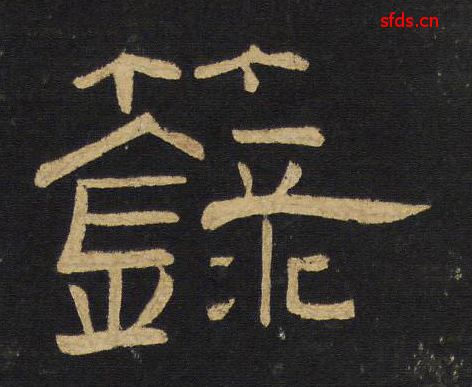 sfds.cn
籙